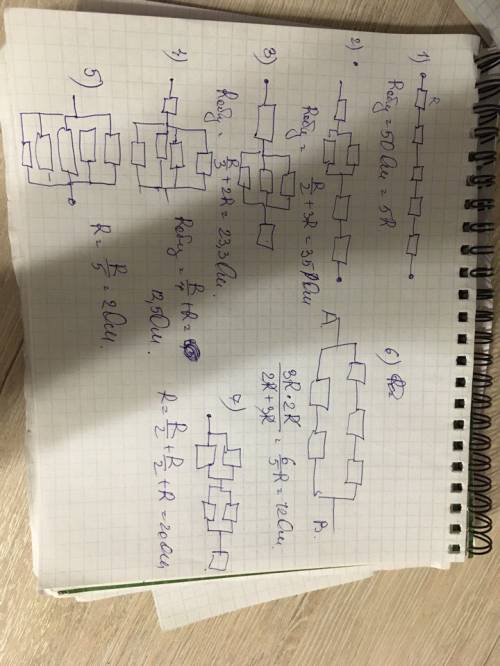 1)
R
Rобщ = 50 Ом = 5R
2)
Rобщ = R/2 + 3R = 35 Ом
3)
Rобщ = R/3 + 2R = 23,3 Ом.
4)
Rобщ = R/4 + R =
12,5 Ом.
5)
R = R/5 = 2 Ом.
6)
A
B
3R·2R/2R+3R = 6/5 R = 12 Ом.
7)
R = R/2 + R/2 + R = 20 Ом